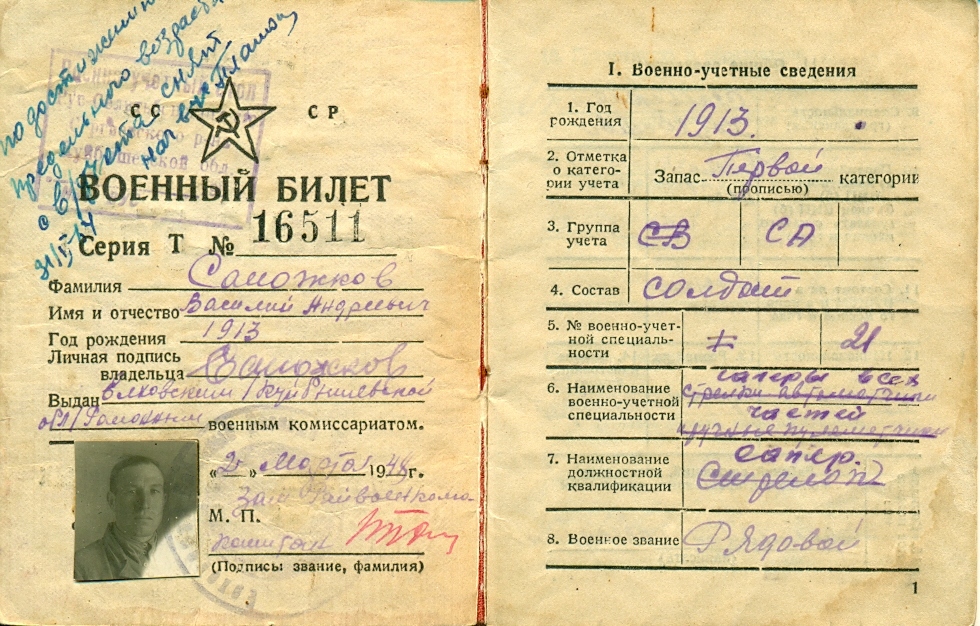 по достижении
предельного возраста
с в/учета снят
31/V-74 нач вуб Плато
ВОЕННО-УЧЕТНЫЙ СТОЛ
Куйбышевской обл.
СС СР
ВОЕННЫЙ БИЛЕТ
Серия Т № 16511
Фамилия Саможков
Имя и отчество Василий Андреевич
Год рождения 1913
Личная подпись
владельца Саможков
Выдан Елховским /Куйбышевской
обл/ Районным военным комиссариатом.
«2» Марта 1948 г.
Зам Райвоенкома
М. П.
капитан
(Подписы звание, фамилия)
I. Военно-учетные сведения
1. Год
рождения 1913.
2. Отметка
о катего-
рии учета Запас Первой категории
(прописью)
3. Группа
учета СВ СА
4. Состав солдат
5. № военно-учет-
ной специаль-
ности 1 21
6. Наименование
военно-учетной
специальности
саперы всех
стрелки автоматчики
частей
ручные пулеметчики
7. Наименование
должностной
квалификации
сапер.
Стрелок
8. Военное звание Рядовой
1